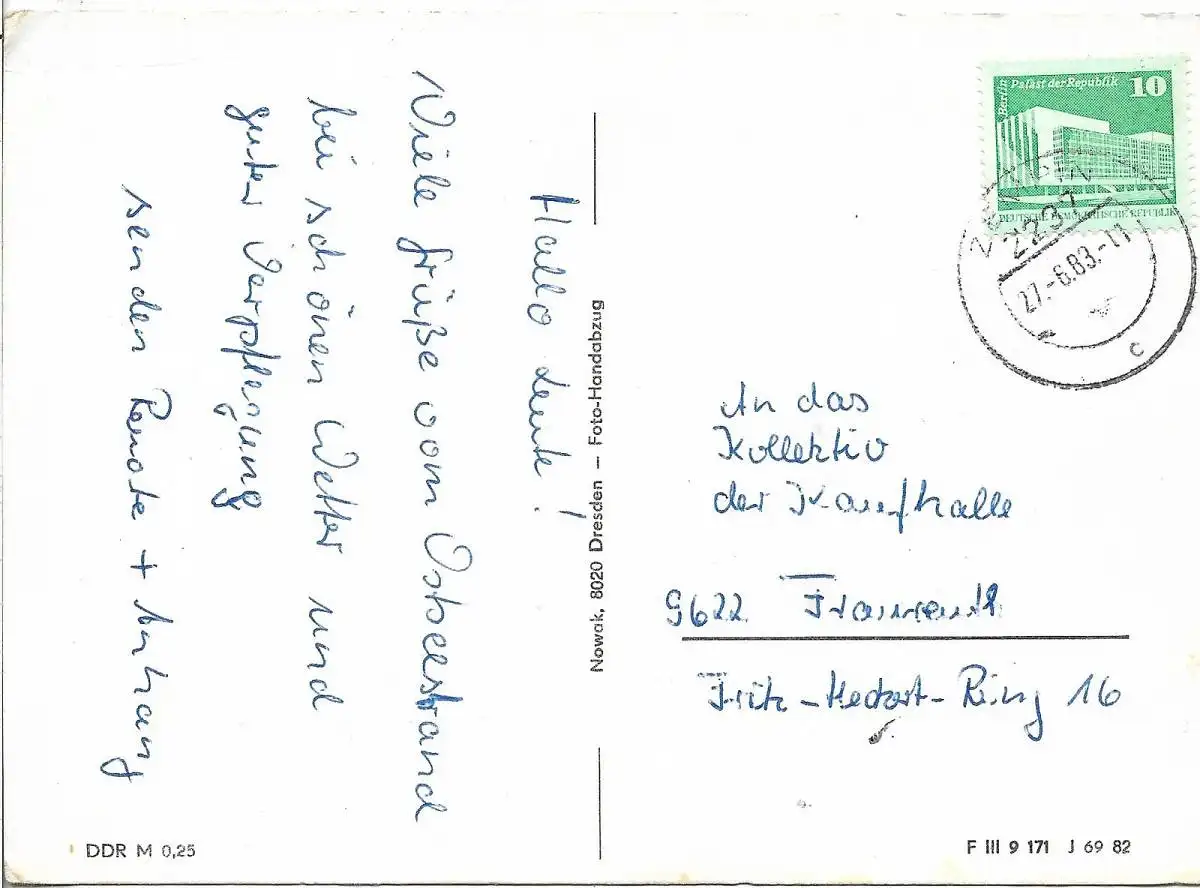 Hallo Leute!
Viele Grüße vom Ostseestrand
bei schönen Wetter und
guter Verpflegung
senden Renate + Anhang
Nowak, 8020 Dresden – Foto-Handabzug
DDR M 0,25
Berlin Palast der Republik 10
DEUTSCHE DEMOKRATISCHE REPUBLIK
2231
27.-6.83.-11
c
An das
Kollektiv
der Kaufhalle
9622 Fraureuth
Fritz-Heckert-Ring 16
F III 9 171 J 69 82